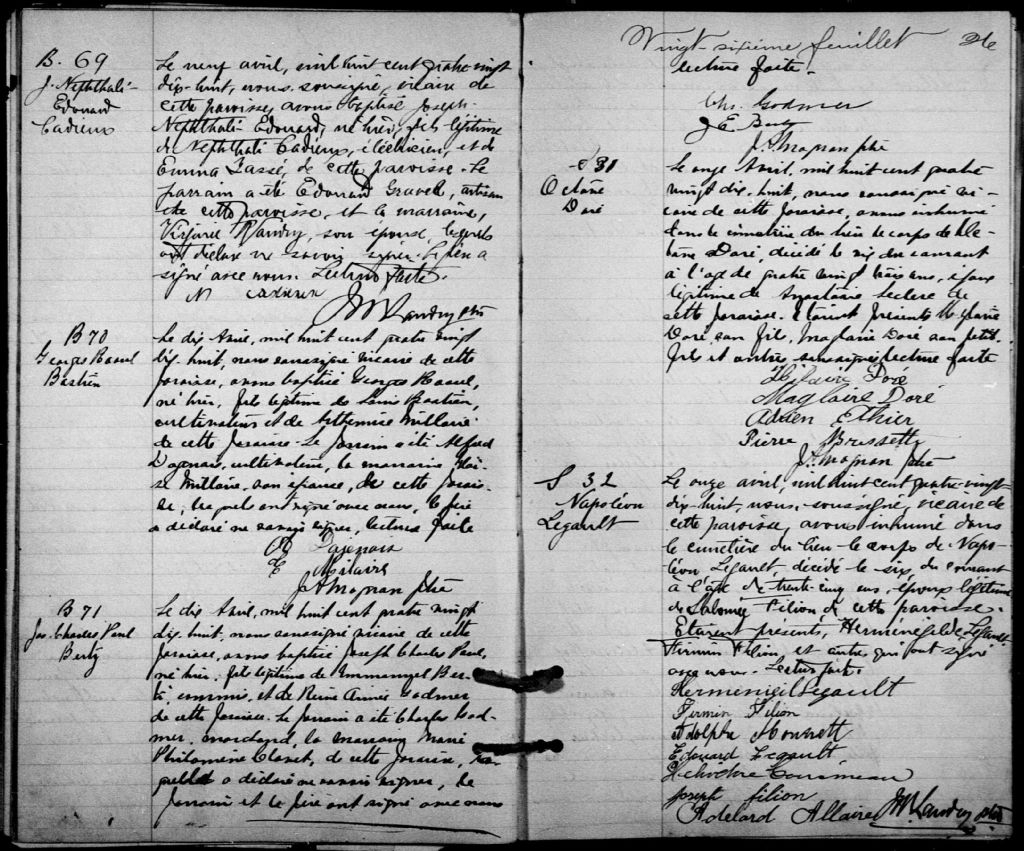 B. 69
J. Nephthali-
Edouard
Cadieux
Le neuf avril, mil huit cent quatre vingt
dix-huit, nous, soussigné, vicaire de
cette paroisse, avons baptisé Joseph-
Nephthali Edouard, né hier, fils légitime
de Nephthali Cadieux, électricien, et de
Emma Lassé, de cette paroisse. Le
parrain a été Edouard Gravel, artisan
de cette paroisse, et la marraine,
Landry, son épouse, lesquels
ont déclaré ne savoir signer. Le père a
signé avec nous. Lecture faite.
N cadieux
JM Landry ptre
B 70
Georges Raoul
Bastien
Le dix Avril, mil huit cent quatre vingt
dix-huit, nous soussigné vicaire de cette
paroisse, avons baptisé Georges Raoul,
né hier, fils légitime de Louis Bastien,
cultivateur et de Arthemise Millaire
de cette paroisse. Le parrain a été Alfred
Dagenais, cultivateur, la marraine
se Millaire, son épouse, de cette parois-
se, lesquels ont signé avec nous, le père
a déclaré ne savoir signer, lecture faite
A Dajenais
E Milaire
JA Magnan ptre
B 71
Jos. Charles Paul
Berty
Le dix Avril, mil huit cent quatre vingt
dix-huit, nous soussigné vicaire de cette
paroisse, avons baptisé Joseph Charles Paul,
né hier, fils légitime de Emmanuel Ber-
ti, commis, et de Marie Aimée Godmer
de cette paroisse. Le parrain a été Charles God-
mer, marchand, la marraine Marie
Philomène de cette paroisse, la-
quelle a déclaré ne savoir signer, le
parrain et le père ont signé avec nous
Vingt-sixième feuillet 26
lecture faite.
Chs. Godmer
J E. Berty
J.A. Magnan ptre
S 31
Octave
Doré
Le onze Avril, mil huit cent quatre
vingt dix-huit, nous soussigné vi-
caire de cette paroisse, avons inhumé
dans le cimetière du lieu le corps de Oc-
tave Doré, décédé le six du courant
à l'age de quatre vingt trois ans, époux
légitime de Anastasie Leclerc de
cette paroisse. Etaient présents
Doré, son fils, Maglaire Doré son petit-
fils et autres soussignés lecture faite
Hilaire Doré
Maglaire Doré
Adrien Ethier
Pierre Brissette
J.A. Magnan ptre
S 32
Napoléon
Legault
Le onze avril, mil huit cent quatre-vingt-
dix-huit, nous, soussigné, vicaire de
cette paroisse, avons inhumé dans
le cimetière du lieu le corps de Napo-
léon Legault, décédé le six, du courant
à l'âge de trente-cinq ans, époux légitime
de Salomée Filion de cette paroisse.
Etaient présents, Herménégilde Legault
Firmin Filion, et autres qui ont signé
avec nous. Lecture faite.
Hermenigil Legault
Firmin Filion
Adolphe
Edouard Legault
Cousineau
Joseph filion
Adelard Allaire JM Landry ptre